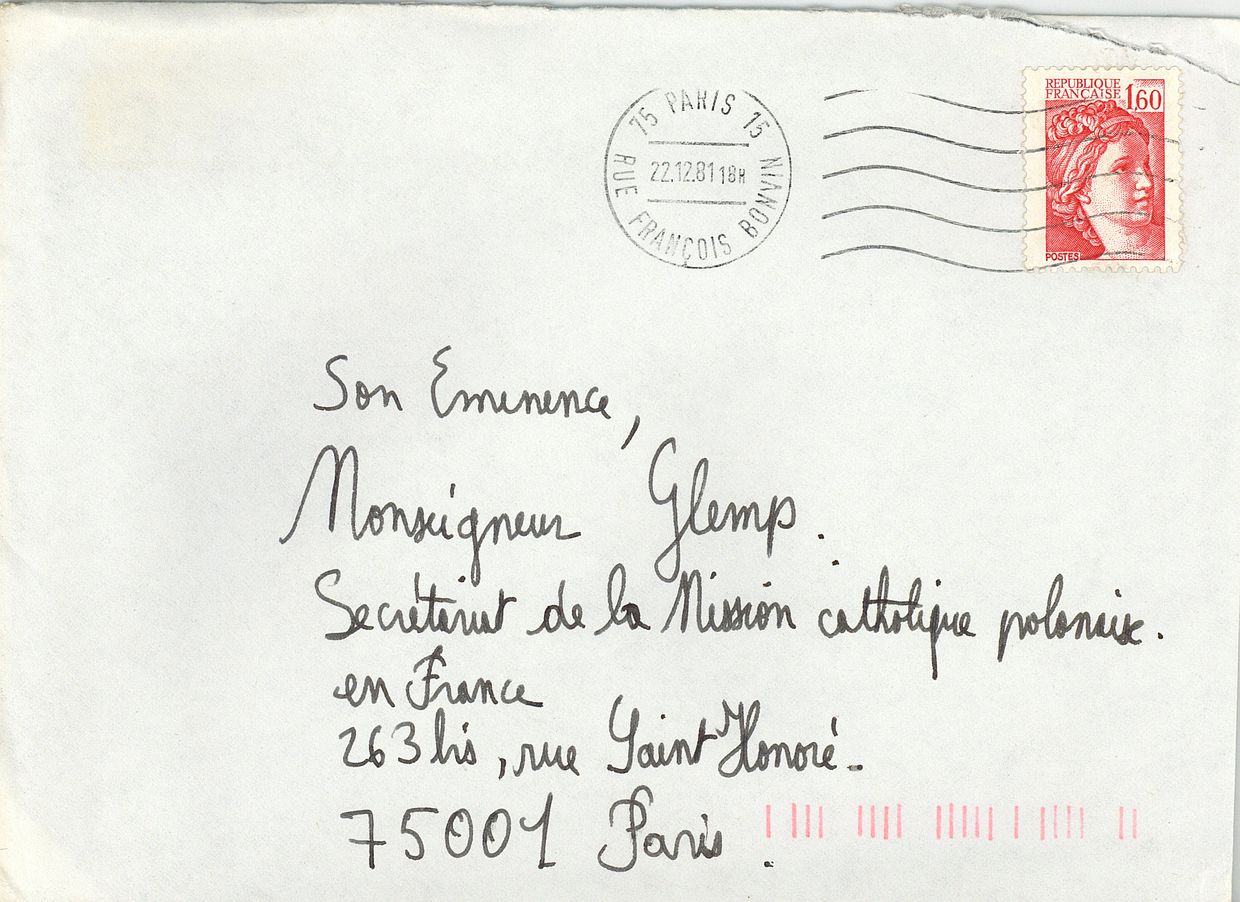 75 PARIS 15
22.12.81 18H
RUE FRANÇOIS BONVIN
REPUBLIQUE
FRANÇAISE 1,60
POSTES
Son Eminence,
Monseigneur Glemp.
Secrétariat de la Mission catholique polonaise.
en France
263 bis, rue Saint Honoré.
75001 Paris.